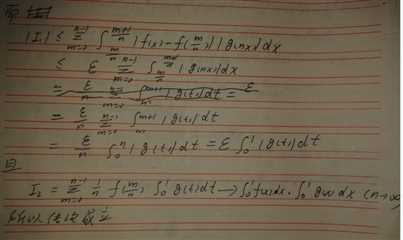 |I₁| ≤ Σ_{m=0}^{n-1} ∫_{m/n}^{(m+1)/n} |f(x) - f(m/n)| |g(nx)| dx
≤ ε Σ_{m=0}^{n-1} ∫_{m/n}^{(m+1)/n} |g(nx)| dx
= ε/n Σ_{m=0}^{n-1} ∫_m^{m+1} |g(t)| dt = ε
= ε/n Σ_{m=0}^{n-1} ∫_m^{m+1} |g(t)| dt
= ε/n ∫_0^n |g(t)| dt = ε ∫_0^1 |g(t)| dt
且
I₂ = Σ_{m=0}^{n-1} 1/n f(m/n) ∫_0^1 g(t) dt → ∫_0^1 f(x) dx · ∫_0^1 g(x) dx (n→∞)
所以 成立